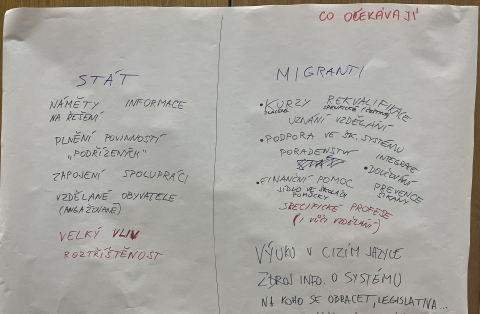 CO OČEKÁVAJÍ
STÁT
NÁMĚTY INFORMACE
NA ŘEŠENÍ
PLNĚNÍ POVINNOSTÍ
„PODŘÍZENÝCH"
ZAPOJENÍ SPOLUPRÁCI
VZDĚLANÉ OBYVATELE
(ANGAŽOVANÉ)
VELKÝ VLIV
ROZTŘÍŠTĚNOST
MIGRANTI
• KURZY REKVALIFIKACE
UZNÁNÍ VZDĚLÁNÍ
• PODPORA VE ŠK. SYSTÉMU
PORADENSTVÍ INTEGRACE
• DOUČOVÁNÍ
• FINANČNÍ POMOC PREVENCE
JÍDLO VE ŠKOLÁCH ŠIKANY
POMŮCKY
SPECIFICKÉ PROFESE
(I VŮČI VZDĚLÁNÍ)
VÝUKU V CIZÍM JAZYCE
ZDROJ INFO. O SYSTÉMU
NA KOHO SE OBRACET, LEGISLATIVA...